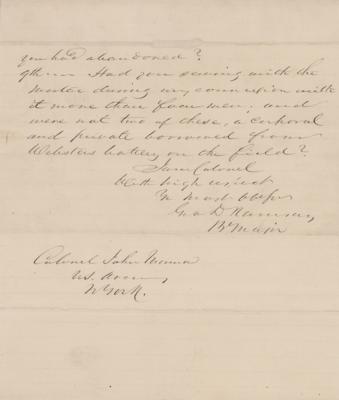 you had abandoned?
9th — Had you serving with the
mortar during my connexion with
it more than four men; and
were not two of these, a corporal
and private borrowed from
Websters battery on the field?
I am Colonel
With high respect
Yr most obt
Geo D. Ramsay
Bt Major
Colonel John Munroe
U.S. Army
N York.